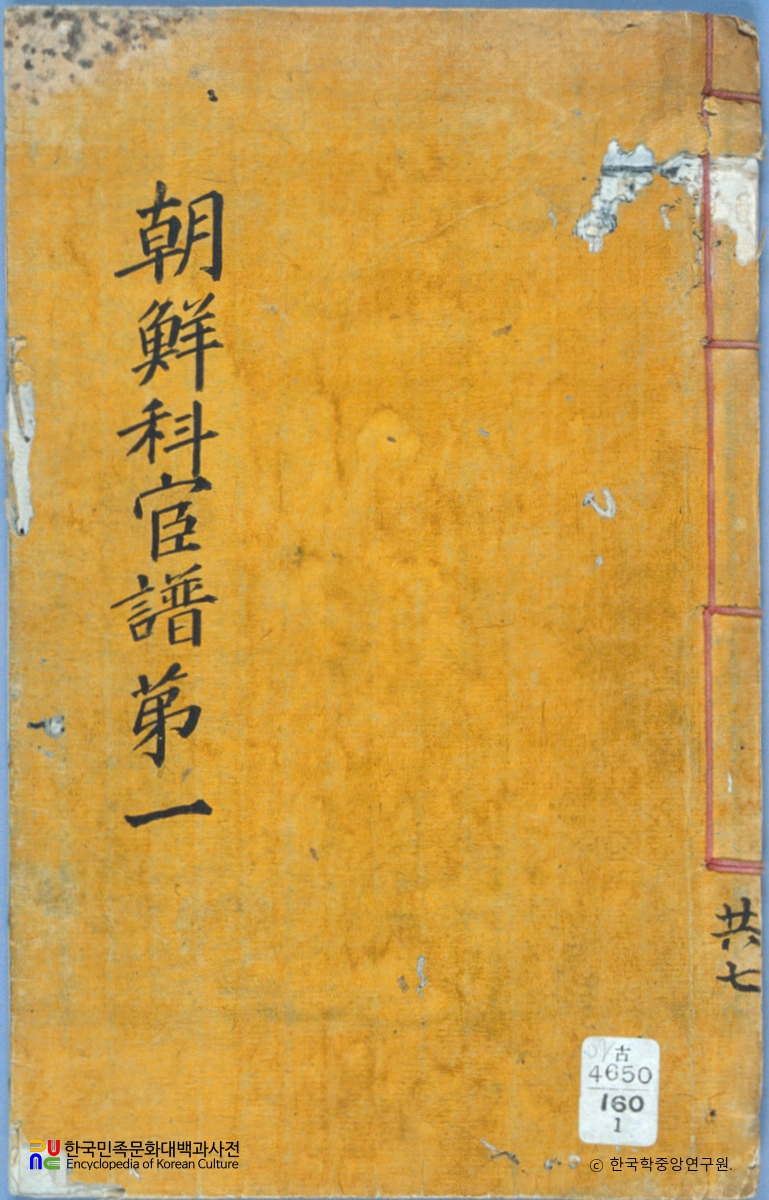 朝鮮科宦譜第一
共七
古
4650
160
1
한국민족문화대백과사전
Encyclopedia of Korean Culture
© 한국학중앙연구원.